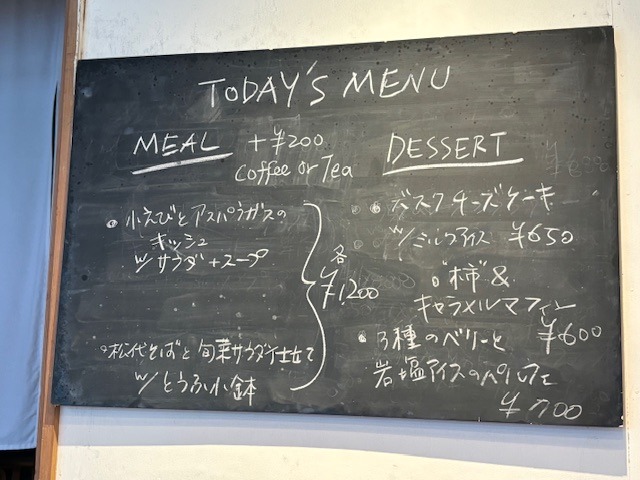 TODAY'S MENU
MEAL +¥200
Coffee or Tea
• 小えびとアスパラガスの
キッシュ
w/サラダ+スープ
• 松代そばと旬菜サラダ仕立て
w/とうふ小鉢
各
¥1,200
DESSERT
• バスクチーズケーキ
w/ミルクアイス ¥650
• "柿"&
キャラメルマフィン
¥600
• 3種のベリーと
岩塩アイスのパルフェ
¥700